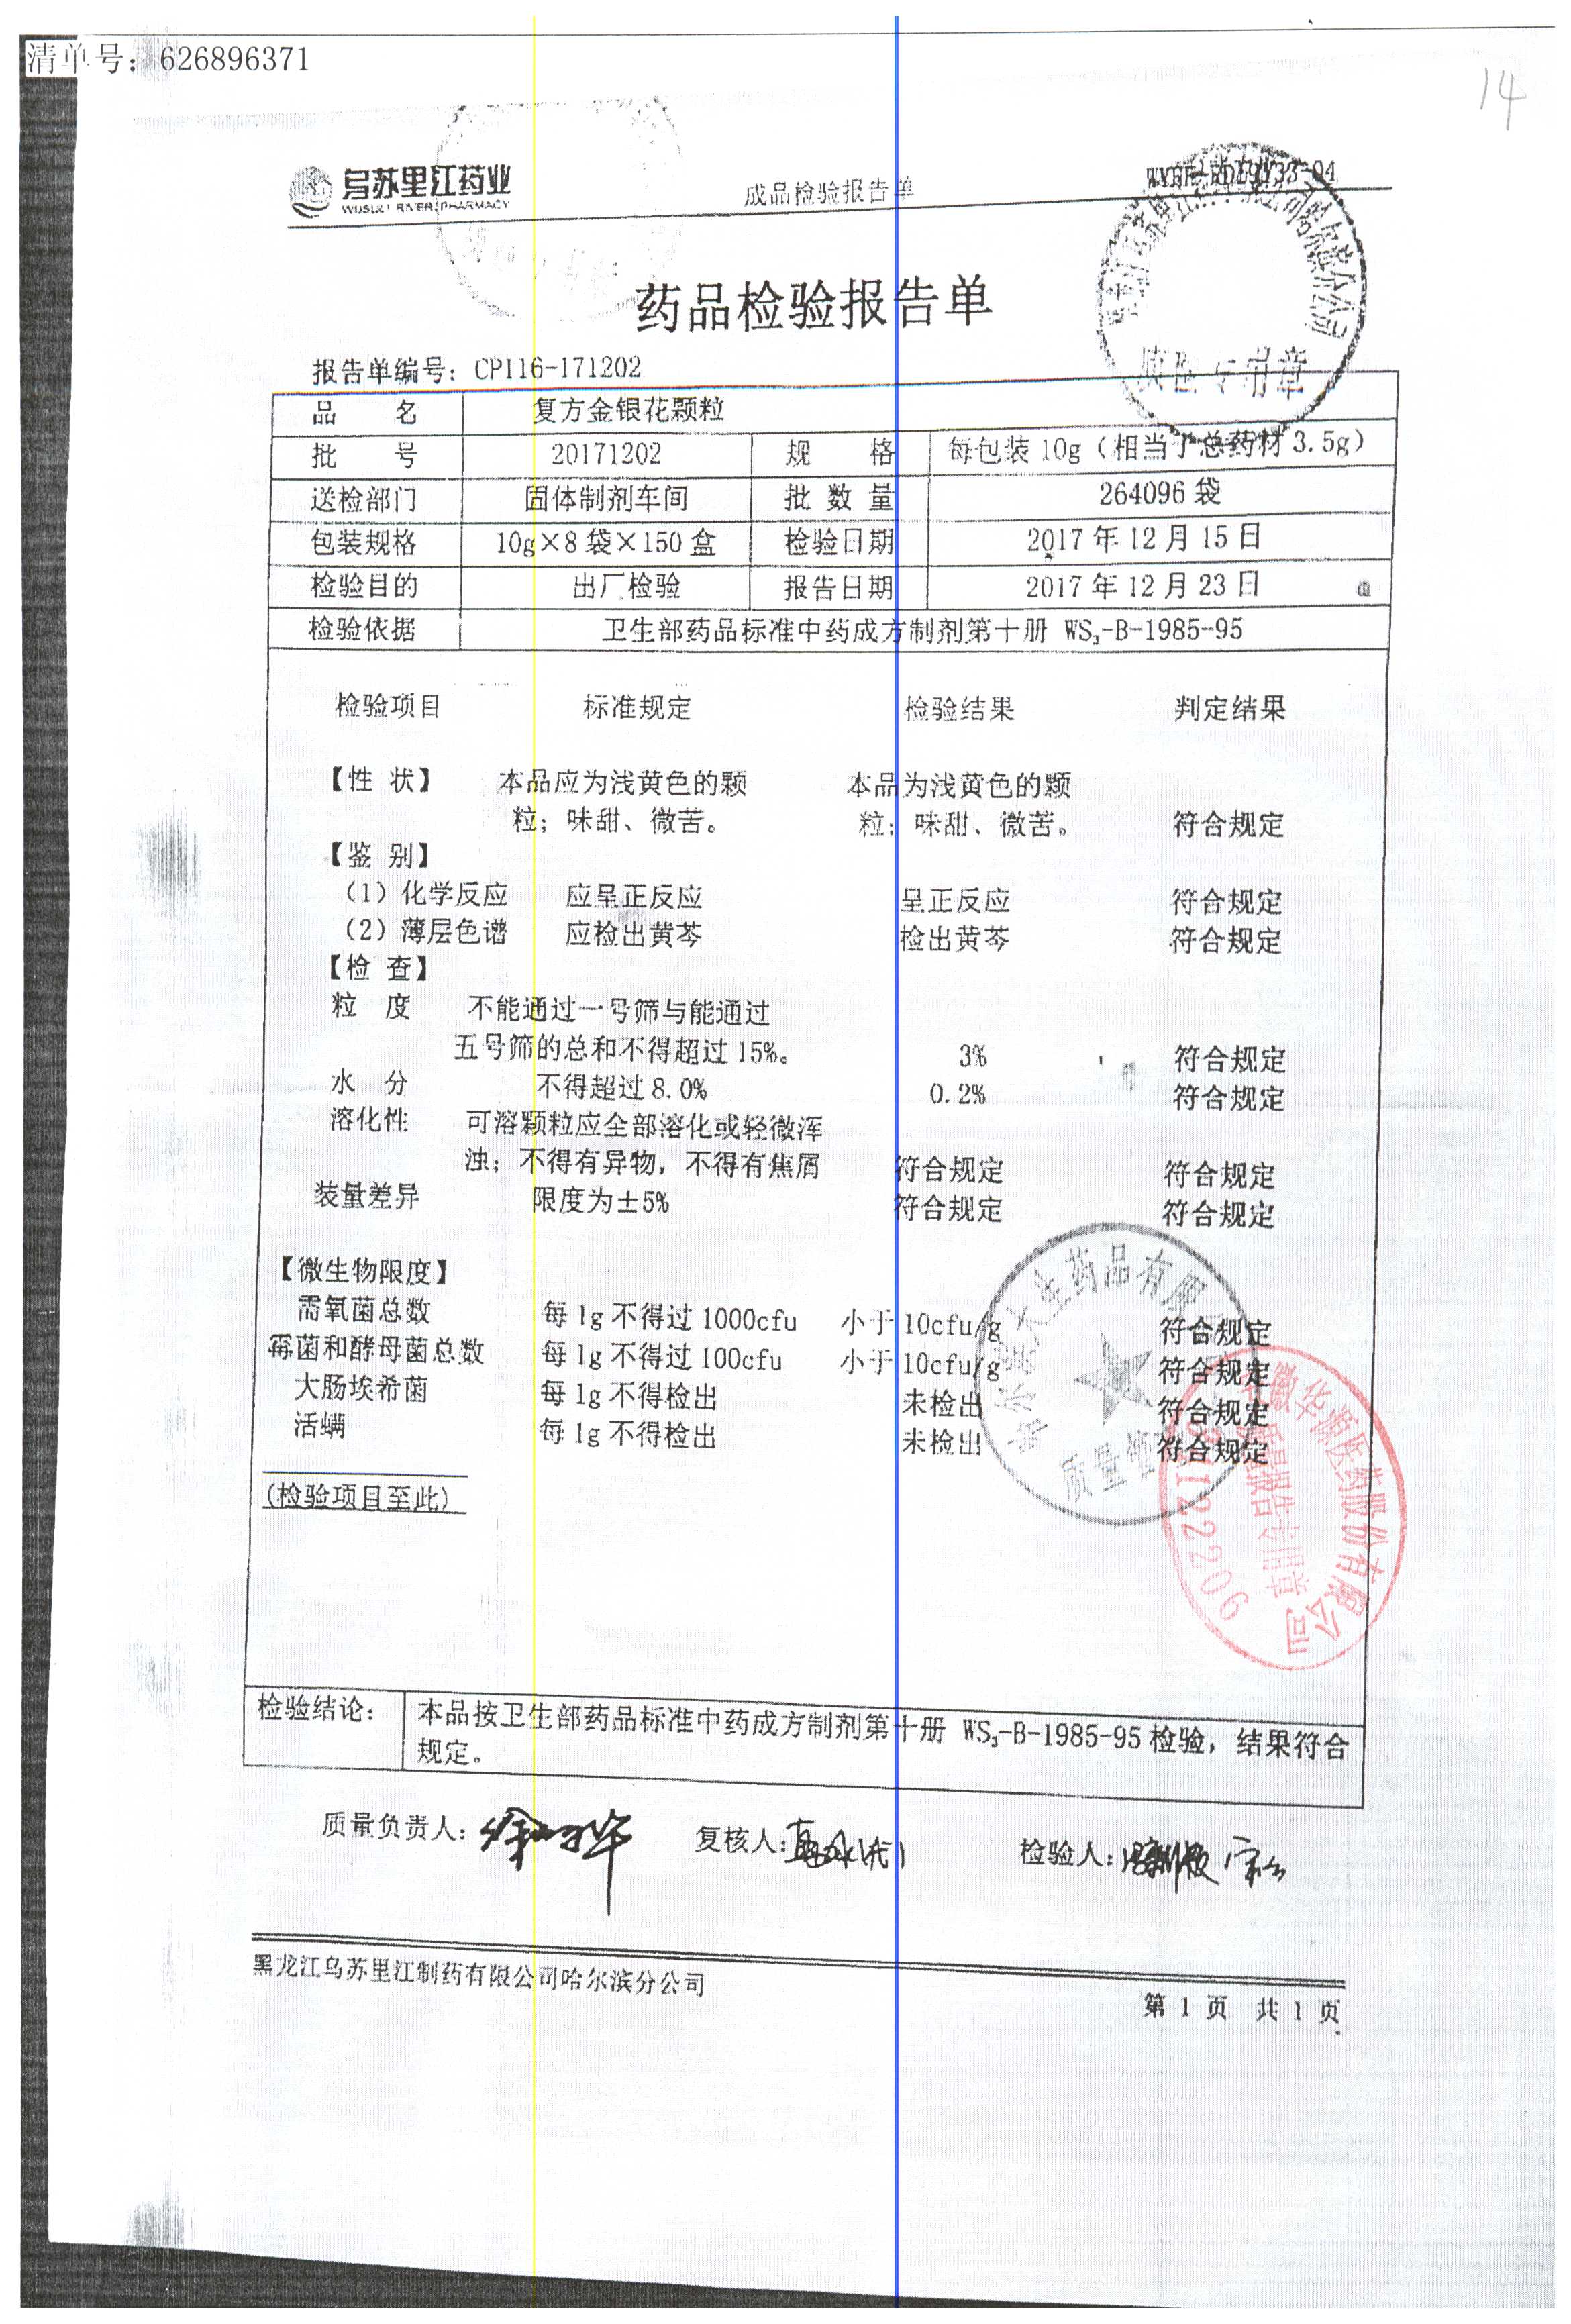 清单号：626896371
14
乌苏里江药业
WUSULI RIVER PHARMACY
成品检验报告单
药品检验报告单
质检专用章
报告单编号：CP116-171202
品 名 复方金银花颗粒
批 号 20171202 规 格 每包装10g（相当于总药材3.5g）
送检部门 固体制剂车间 批 数 量 264096袋
包装规格 10g×8袋×150盒 检验日期 2017年12月15日
检验目的 出厂检验 报告日期 2017年12月23日
检验依据 卫生部药品标准中药成方制剂第十册 WS₃-B-1985-95
检验项目 标准规定 检验结果 判定结果
【性 状】 本品应为浅黄色的颗 本品为浅黄色的颗
粒；味甜、微苦。 粒；味甜、微苦。 符合规定
【鉴 别】
（1）化学反应 应呈正反应 呈正反应 符合规定
（2）薄层色谱 应检出黄芩 检出黄芩 符合规定
【检 查】
粒 度 不能通过一号筛与能通过
五号筛的总和不得超过15%。 3% 符合规定
水 分 不得超过8.0% 0.2% 符合规定
溶化性 可溶颗粒应全部溶化或轻微浑
浊；不得有异物，不得有焦屑 符合规定 符合规定
装量差异 限度为±5% 符合规定 符合规定
【微生物限度】
需氧菌总数 每1g不得过1000cfu 小于10cfu/g 符合规定
霉菌和酵母菌总数 每1g不得过100cfu 小于10cfu/g 符合规定
大肠埃希菌 每1g不得检出 未检出 符合规定
活螨 每1g不得检出 未检出 符合规定
大生药品有限
质量管
安徽华源医药股份有限公司
质量报告专用章
(检验项目至此)
检验结论： 本品按卫生部药品标准中药成方制剂第十册 WS₃-B-1985-95检验，结果符合
规定。
质量负责人： 复核人： 检验人：
黑龙江乌苏里江制药有限公司哈尔滨分公司
第 1 页 共 1 页